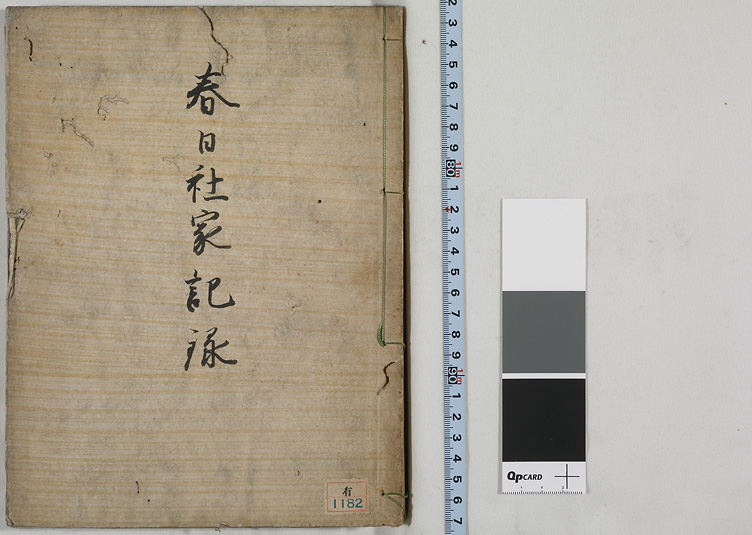 春日社家記録
有
1182
2
3
4
5
6
7
8
9
80 1m
1
2
3
4
5
6
7
8
9
90 1m
1
2
3
4
5
6
7
QPCARD